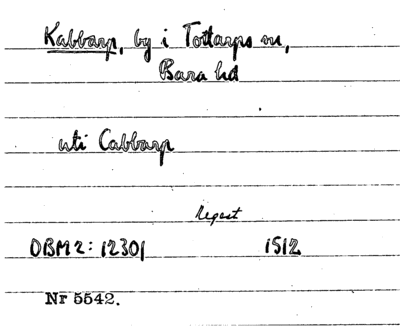 Kabbarp, by i Tottarps sn,
Bara hd
uti Cabbarp
Regest
DBM 2: 12301 1512
Nr 5542.